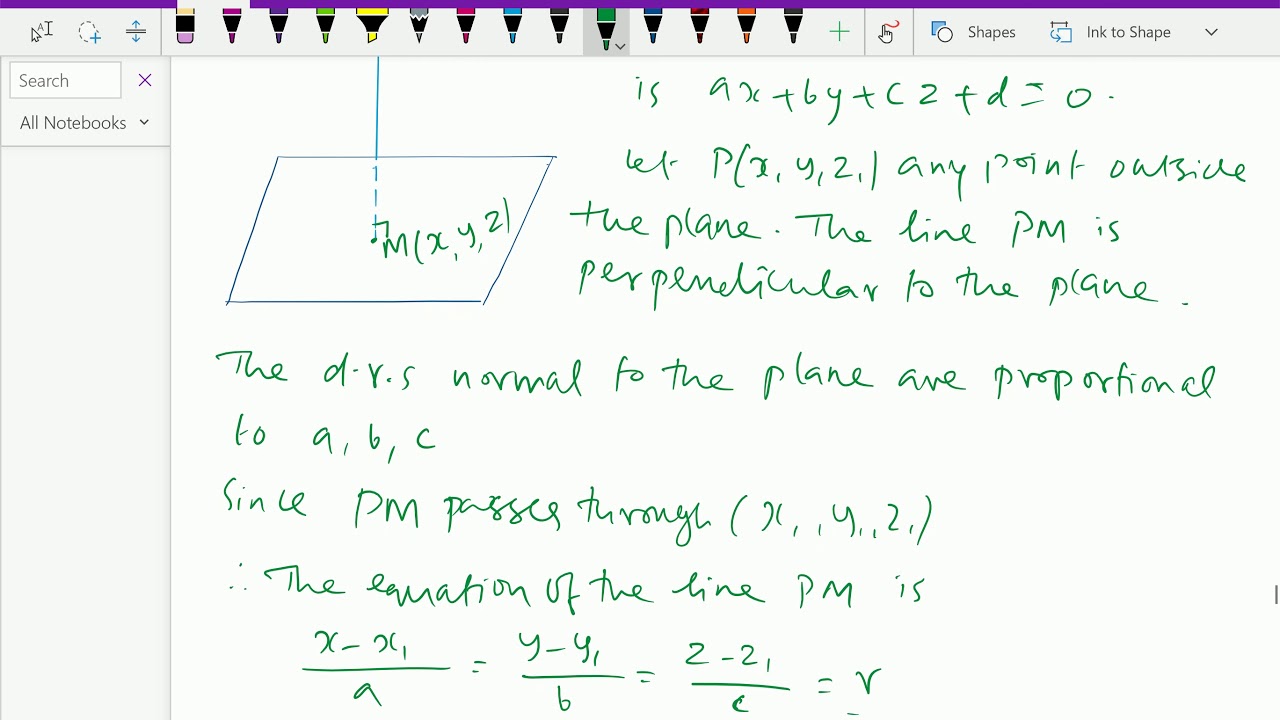 Shapes
Ink to Shape
Search
All Notebooks
is ax+by+cz+d=0.
let P(x₁ y₁ z₁) any point outside
the plane. The line PM is
perpendicular to the plane.
M(x, y, z)
The d.r.s normal to the plane are proportional
to a, b, c
Since PM passes through (x₁, y₁, z₁)
∴ The equation of the line PM is
(x-x₁)/a = (y-y₁)/b = (z-z₁)/c = r